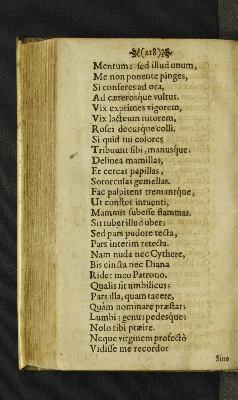 (218)
Mentum: sed illud unum,
Me non ponente pinges,
Si conferes ad ora,
Ad cæterosque vultus.
Vix exprimes vigorem,
Vix lacteum nitorem,
Rosei decusque colli.
Si quid tui colores
Tribuunt sibi, manusque:
Delinea mamillas,
Et certas papillas,
Sororculas gemellas.
Fac palpitent tremantque,
Ut constet intuenti,
Mammis subesse flammas.
Sit tuber illud uber:
Sed pars pudore tecta,
Pars interim retecta.
Nam nuda nec Cythere,
Bis cincta nec Diana
Ridet meo Patrono.
Qualis sit umbilicus:
Pars illa, quam tacere,
Quàm nominare præstat:
Lumbi: genu: pedesque:
Nolo tibi præire.
Neque virginem profectò
Vidisse me recordor
Sine